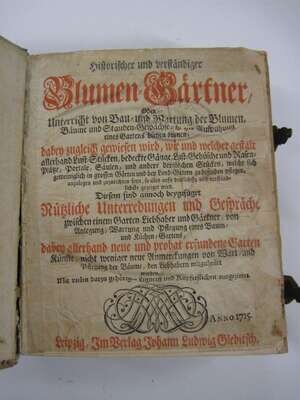 Historischer und verständiger
Blumen-Gärtner,
Oder
Unterricht von Bau- und Wartung der Blumen,
Bäume und Stauden-Gewächse, so zur
eines Gartens dienen können,
dabey zugleich gewiesen wird, wie und welcher gestalt
allerhand Lust-Stücken, bedeckte Gänge, Lust-Gebüsche und Rasen-
Plätze, Portale, Säulen, und andere dergleichen Stücken, welche sich
gemeiniglich in grossen Gärten und bey Land-Gütern zu befinden pflegen,
anzulegen und
Diesem sind annoch beygefüget
Nützliche Unterredungen und Gespräche
zwischen einem Garten Liebhaber und Gärtner, von
Anlegung, Wartung und Pflantzung eines Baum-
und Küchen-Gartens,
dabey allerhand neue und probat erfundene Garten
Künste, nicht weniger neue Anmerckungen von Wart- und
Pflantzung der Bäume, den Liebhabern mitgetheilet
werden,
Mit vielen darzu gehörig- Figuren und Kupfferstichen ausgezieret.
ANNO 1715.
Leipzig, Im Verlag Johann Ludwig Gleditsch.